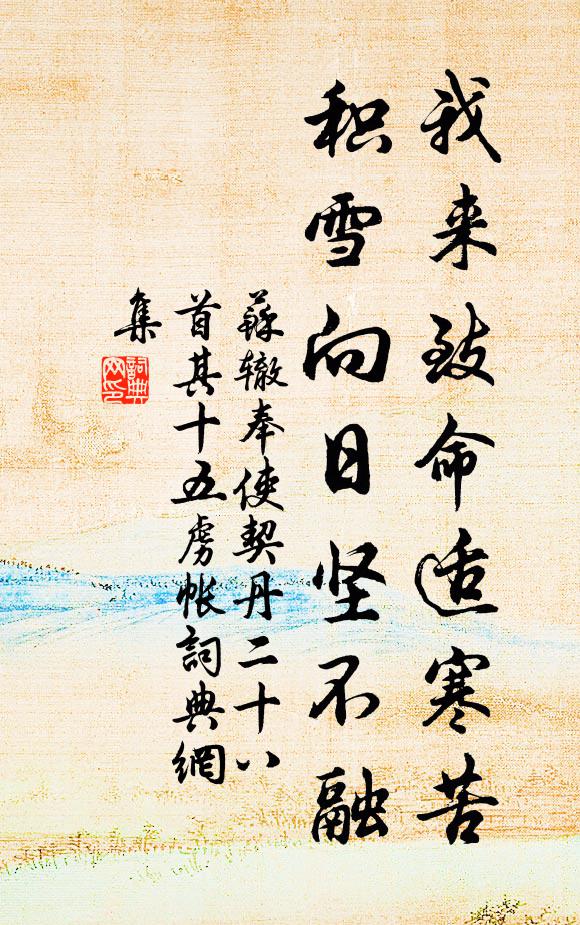 我来致命适寒苦
积雪向日坚不融
蘇辙奉使契丹二十八
首其十五虏帐詞典網
集
詞典网印